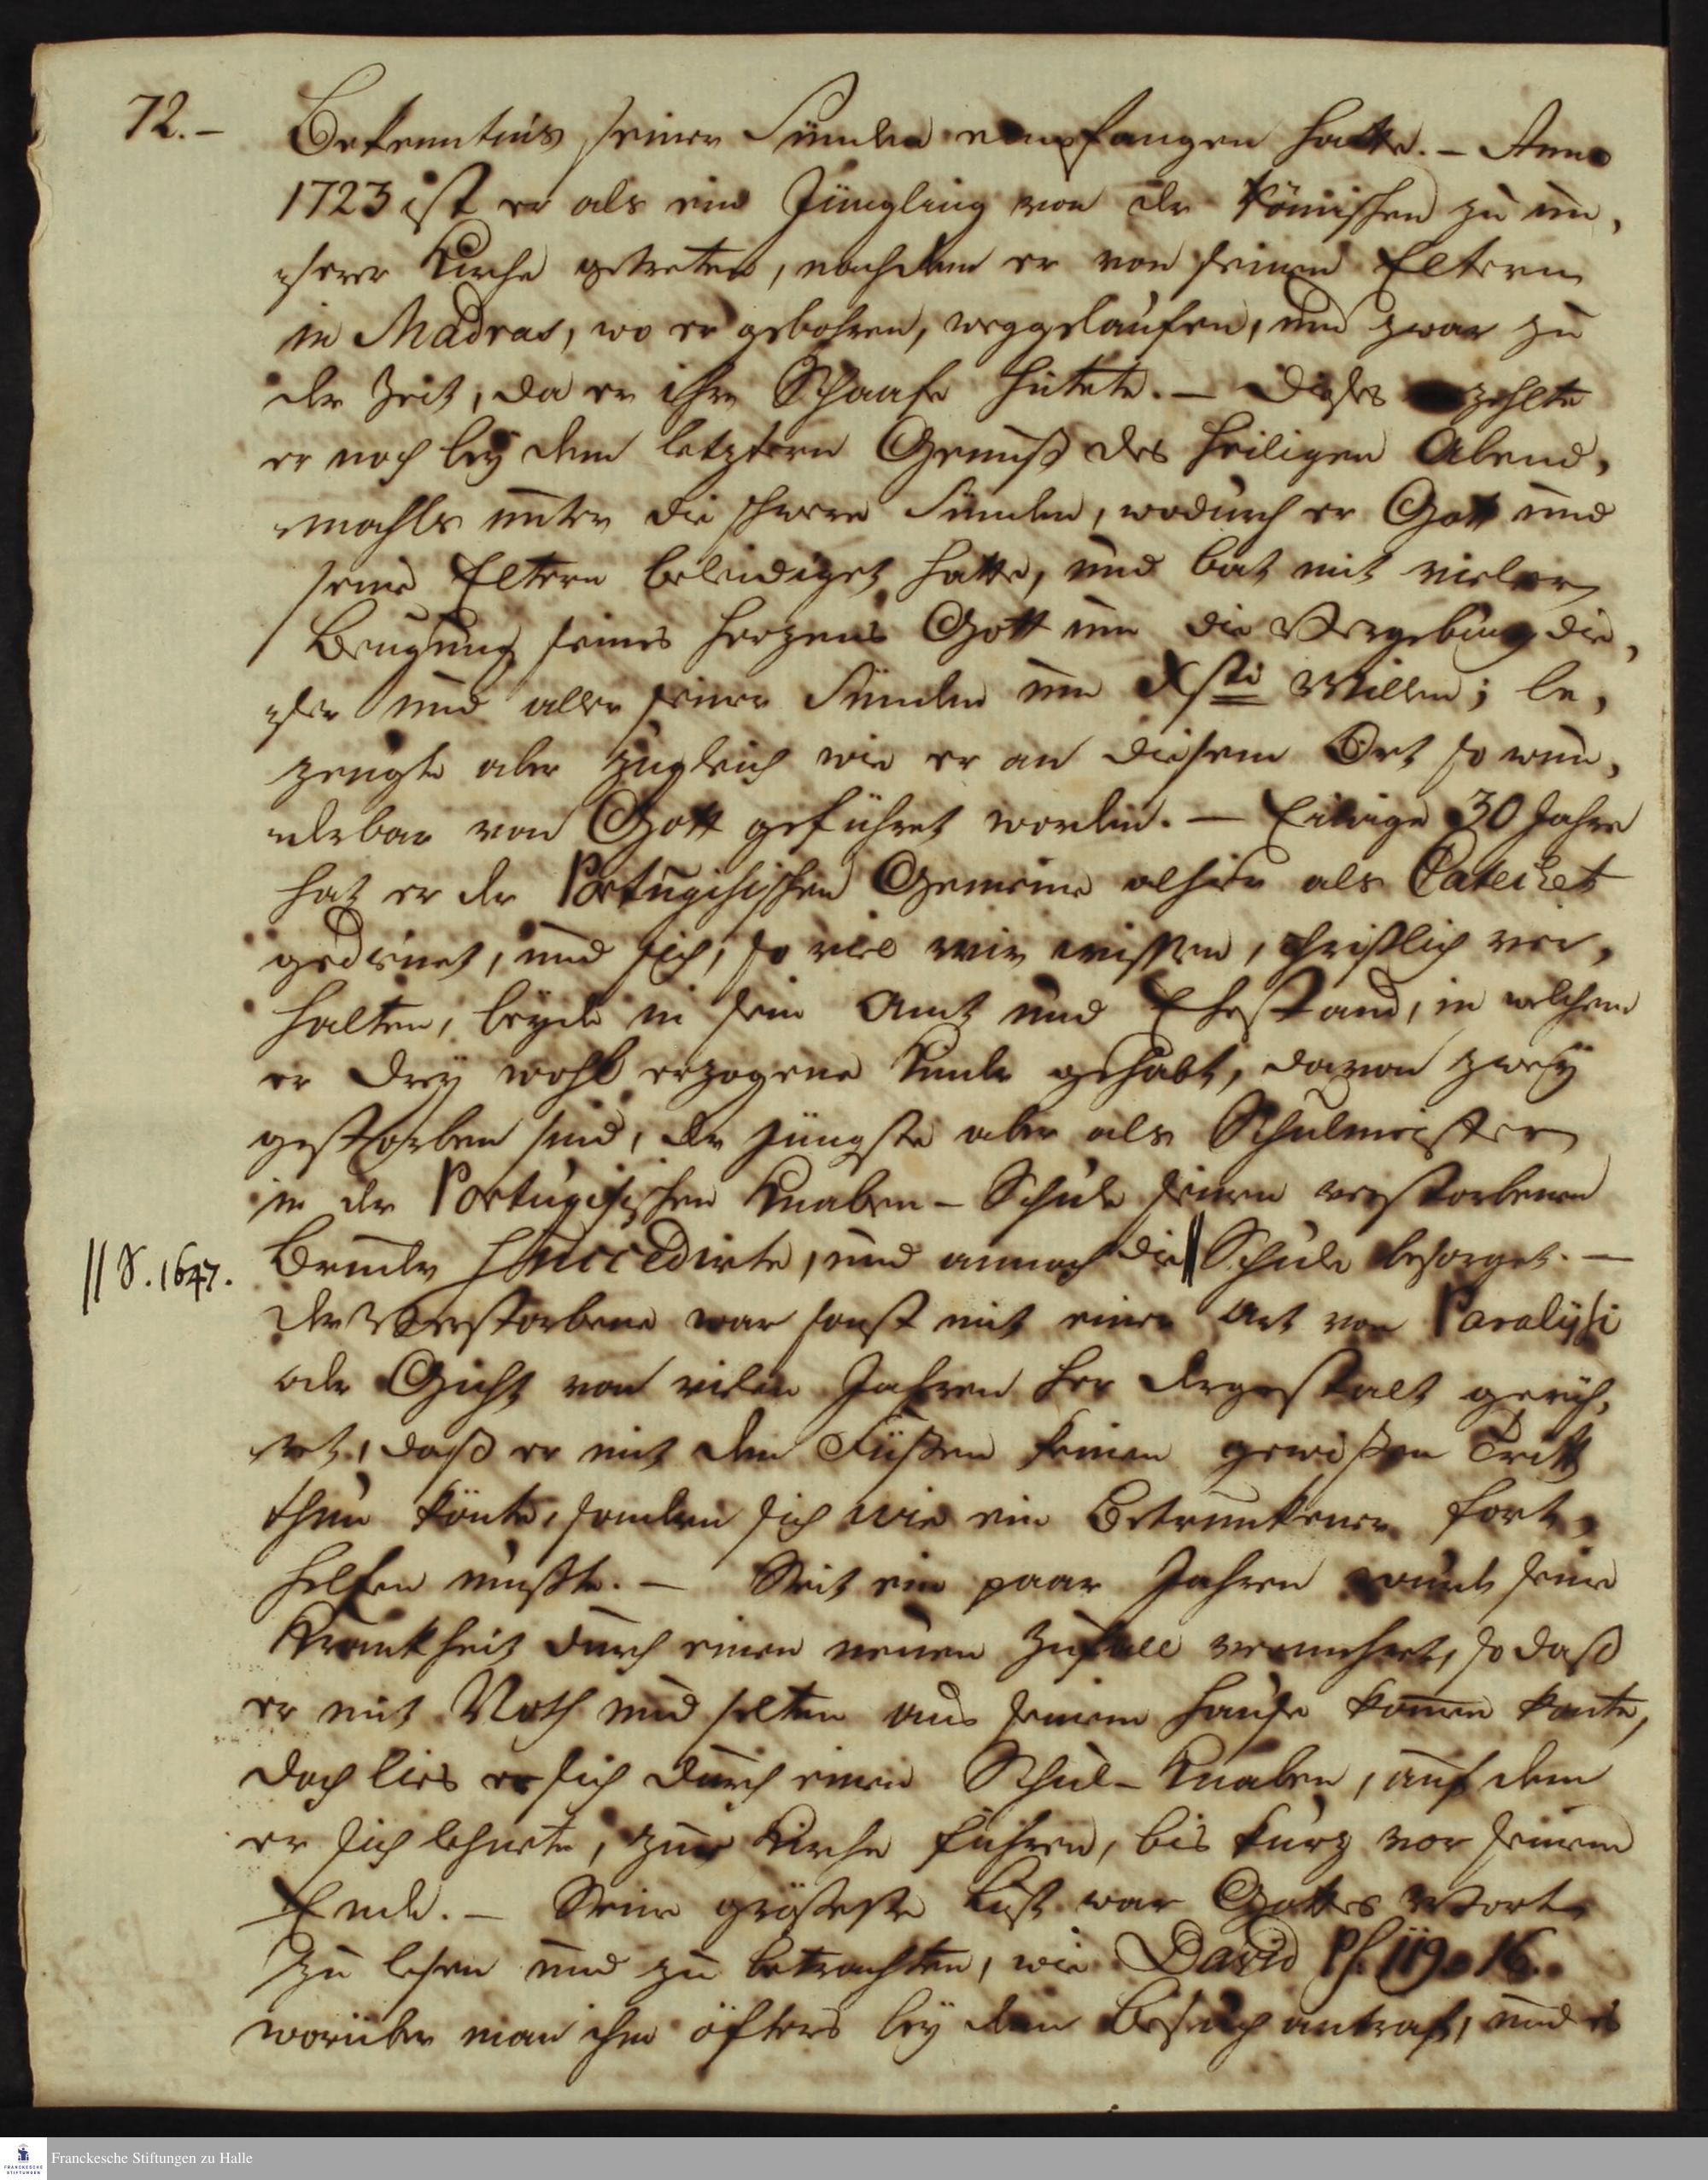 72.– Bekenntnis seiner Sünden empfangen hatte. – Anno
1723 ist er als ein Jüngling von der Römischen zu un,
serer Kirche getreten, nachdem er von seinen Eltern
in Madras, wo er gebohren, weggelaufen, und zwar zu
der Zeit, da er ihre Schaafe hütete. – Dieses zehlte
er noch bey dem letztern Genuß des heiligen Abend,
mahls unter die schwere Sünden, wodurch er Gott und
seine Eltern beleidiget hatte, und bat mit vieler
Beugung seines Herzens Gott um die Vergebung die,
ser und aller seiner Sünden um Xsti Willen; be,
zeugte aber zugleich wie er an diesem Ort so wun,
derbar von Gott geführet worden. – Einige 30 Jahre
hat er der Portugisischen Gemeine alhier als Catechet
gedienet, und sich, so viel wir wissen, christlich ver,
halten, beyde in sein Amt und Ehestand, in welchem
er drey wohl erzogene Kinder gehabt, davon zwey
gestorben sind, der jüngste aber als Schulmeister
in der Portugisischen Knaben-Schule seinen verstorbenen
Bruder succedirte, und annoch die || Schule besorget. –
|| S. 1647.
Der Verstorbene war sonst mit einer Art von Paralysi
oder Gicht von vielen Jahren her dergestalt gerüh,
ret, daß er mit den Füßen keinen gewißen Tritt
thun könte, sondern sich wie ein Betrunkener fort,
helfen mußte. – Seit ein paar Jahren wurde seine
Krankheit durch einen neuen Zufall vermehret, so daß
er mit Noth und selten aus seinem Hause komen konte,
doch lies er sich durch einen Schul-Knaben, auf dem
er sich lehnete, zur Kirche führen, bis kurz vor seinem
Ende. – Seine größeste Lust war Gottes Wort
zu lesen und zu betrachten, wie David Ps. 119. 16.
worüber man ihn öfters bey dem Besuch antraf, und es
Franckesche Stiftungen zu Halle
FRANCKESCHE
STIFTUNGEN